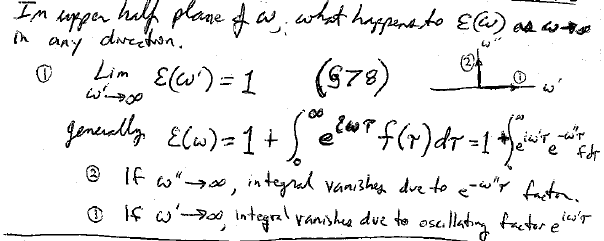 In upper half plane of ω, what happens to ε(ω) as ω→∞
in any direction.
ω''
② ① ω'
① Lim ε(ω') = 1 (§78)
ω'→∞
generally ε(ω) = 1 + ∫₀^∞ e^{iωτ} f(τ)dτ = 1 + ∫₀^∞ e^{iω'τ} e^{-ω''τ} f dτ
② If ω''→∞, integral vanishes due to e^{-ω''τ} factor.
① If ω'→∞, integral vanishes due to oscillating factor e^{iω'τ}